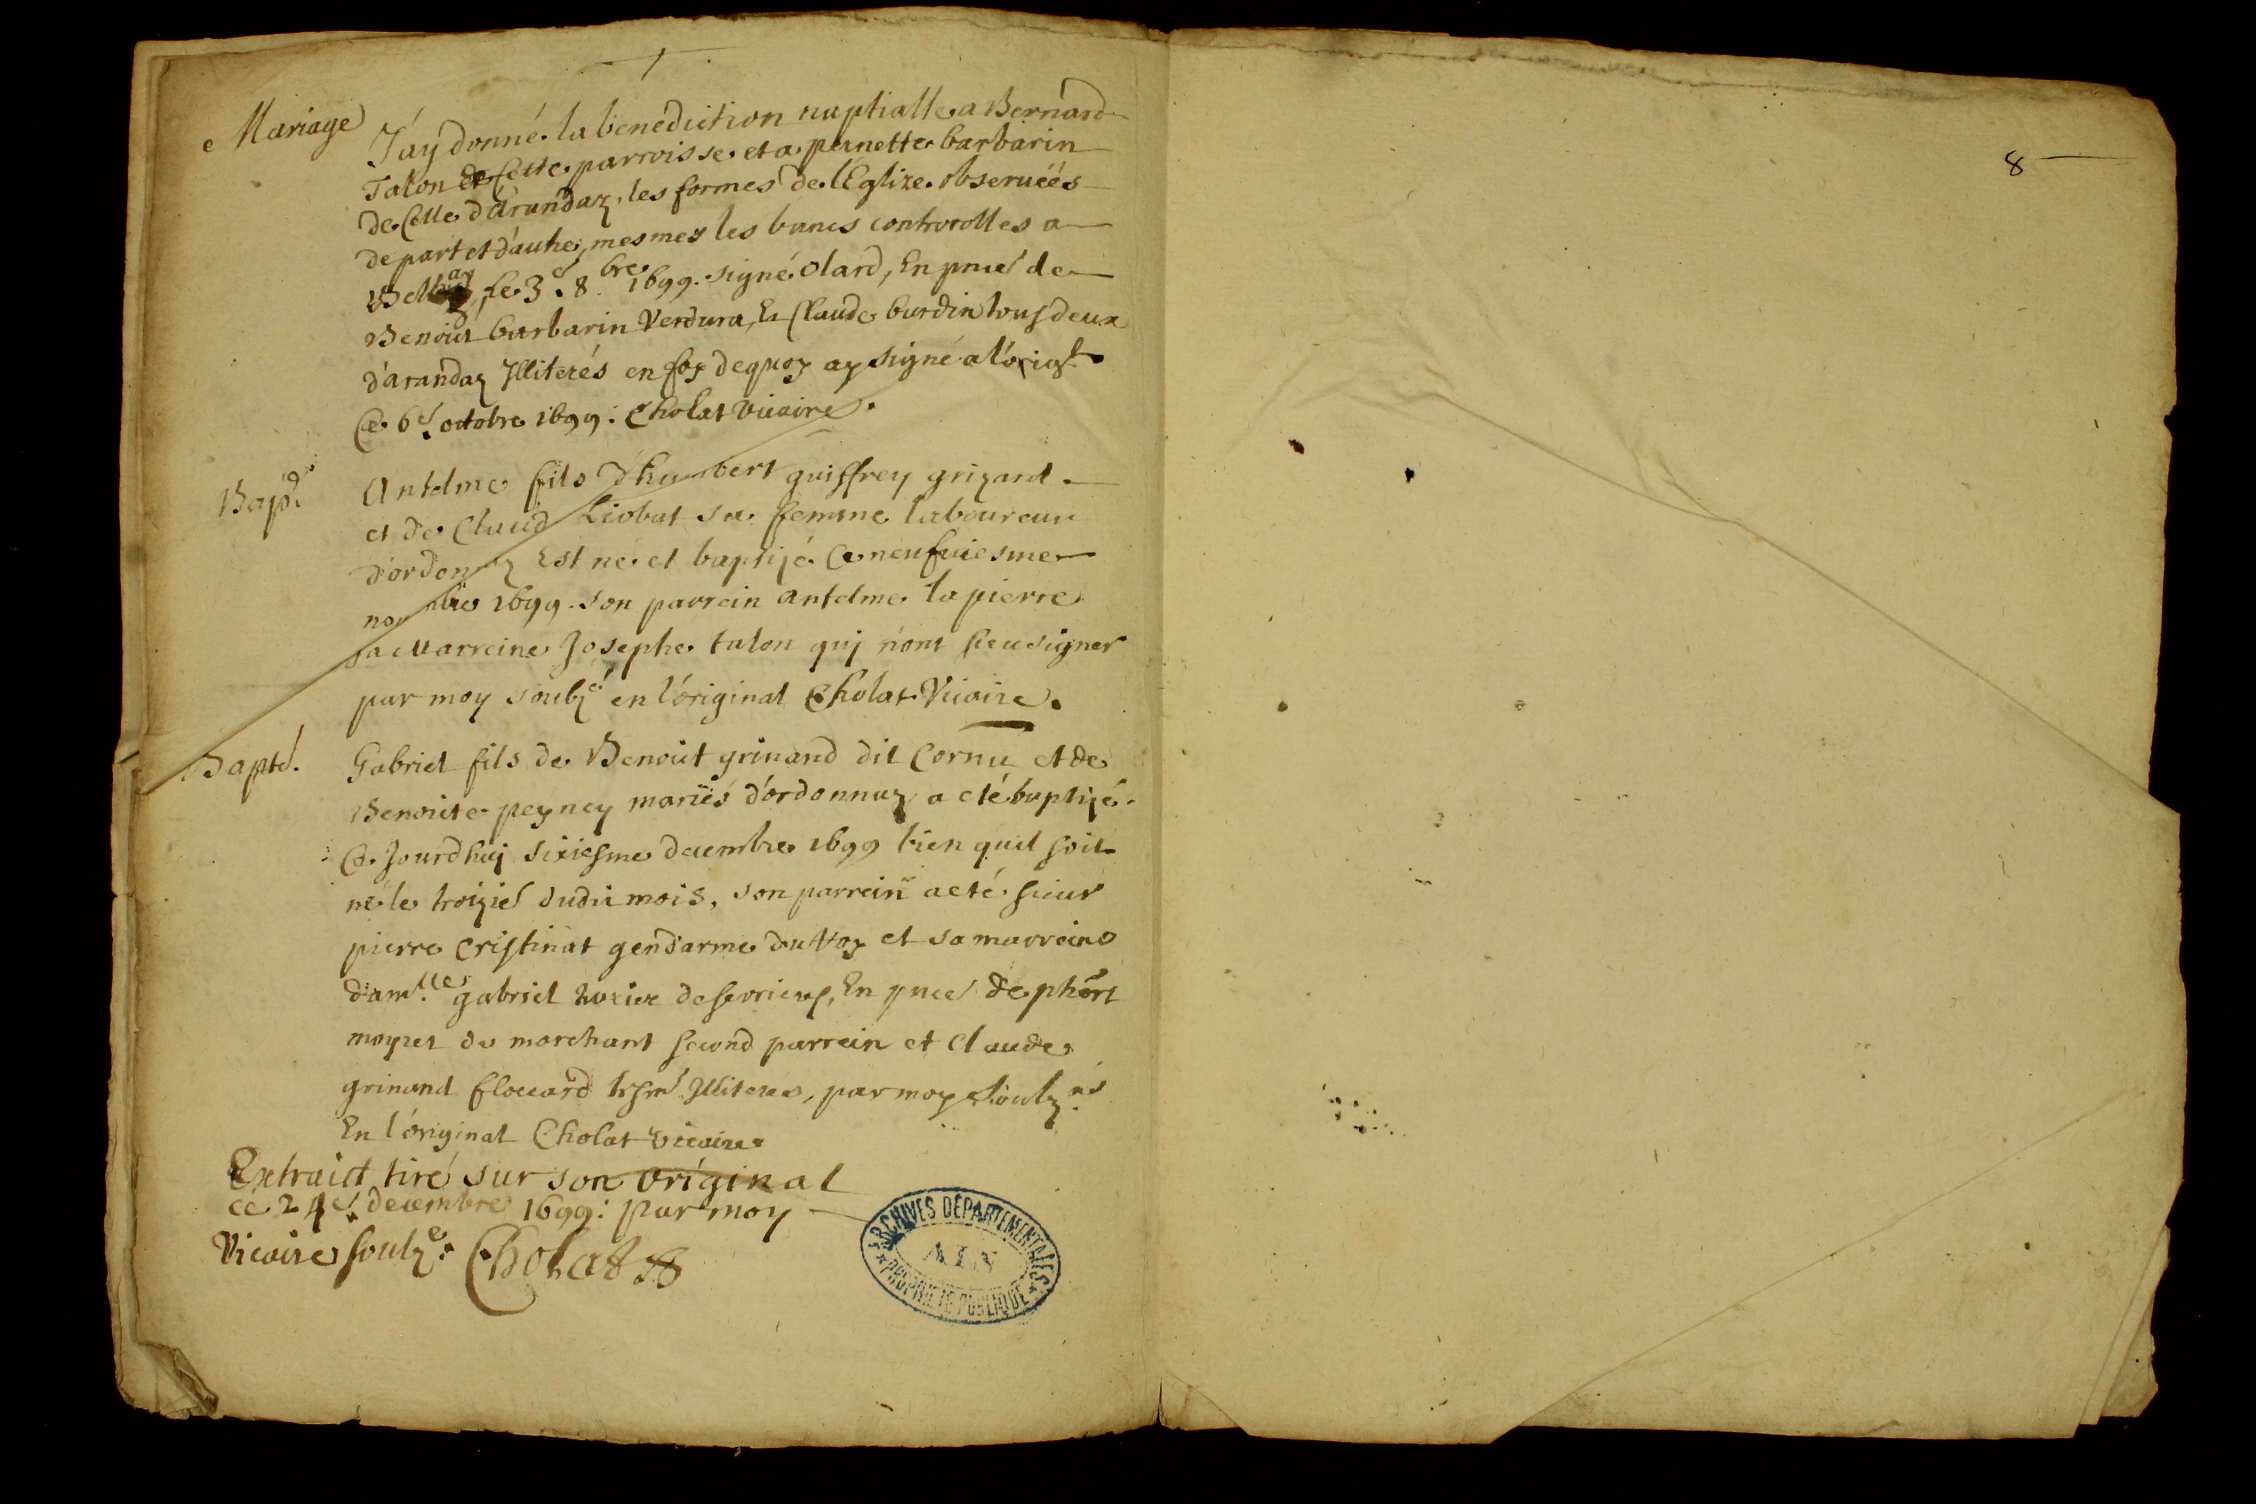 Mariage
J'ay donné la benediction nuptialle a Bernard
Talon de Cette parroisse et a pernette barbarin
de Celle d'arandaz, les formes de l'Eglize obseruéés
de part et d'autre, mesmes les bancs controolles a
Belley, le 3e 8bre 1699. signé Olard, En pnce de
Benoit barbarin Verdura, Et Claude burdin tous deux
d'arandaz Illiterés en foy dequoy ay signé a l'origl
Ce 6e octobre 1699: Cholat Vicaire.
Bapd.
Antelme fils d'humbert guiffrey grizard
et de Claud Liobat sa femme laboureur
d'ordon z Est né et baptizé Ce neufuiesme
no bre 1699. son parrein antelme la pierre
sa Marreine Josephe talon qui n'ont sceu signer
par moy soubzé en l'original Cholat Vicaire.
Bapté.
Gabriel fils de Benoit grinand dit Cornu et de
Benoite peyney mariés d'ordonnaz a eté baptizé
Ce Jourdhuy sixiesme decembre 1699 bien quil soit
né le troizie dudit mois, son parrein a eté sieur
pierre Cristinat gendarme du Roy et sa marreine
dam.lle gabriel, En pnce de phert
moyret du marchant second parrein et Claude
grinand floccard Illiterés, par moy soubz né
En l'original Cholat Vicaire
Extraict tiré sur son original
ce 24e decembre 1699: par moy
Vicaire soubzé. Cholat
ARCHIVES DÉPARTEMENTALES
AIN
PROPRIÉTÉ PUBLIQUE
8